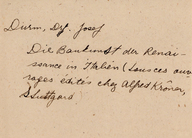 Durm, Dr. Josef
Die Baukunst der Renais-
sance in Italien (Sources ouv-
rages édités chez Alfred Kröner,
Stuttgart